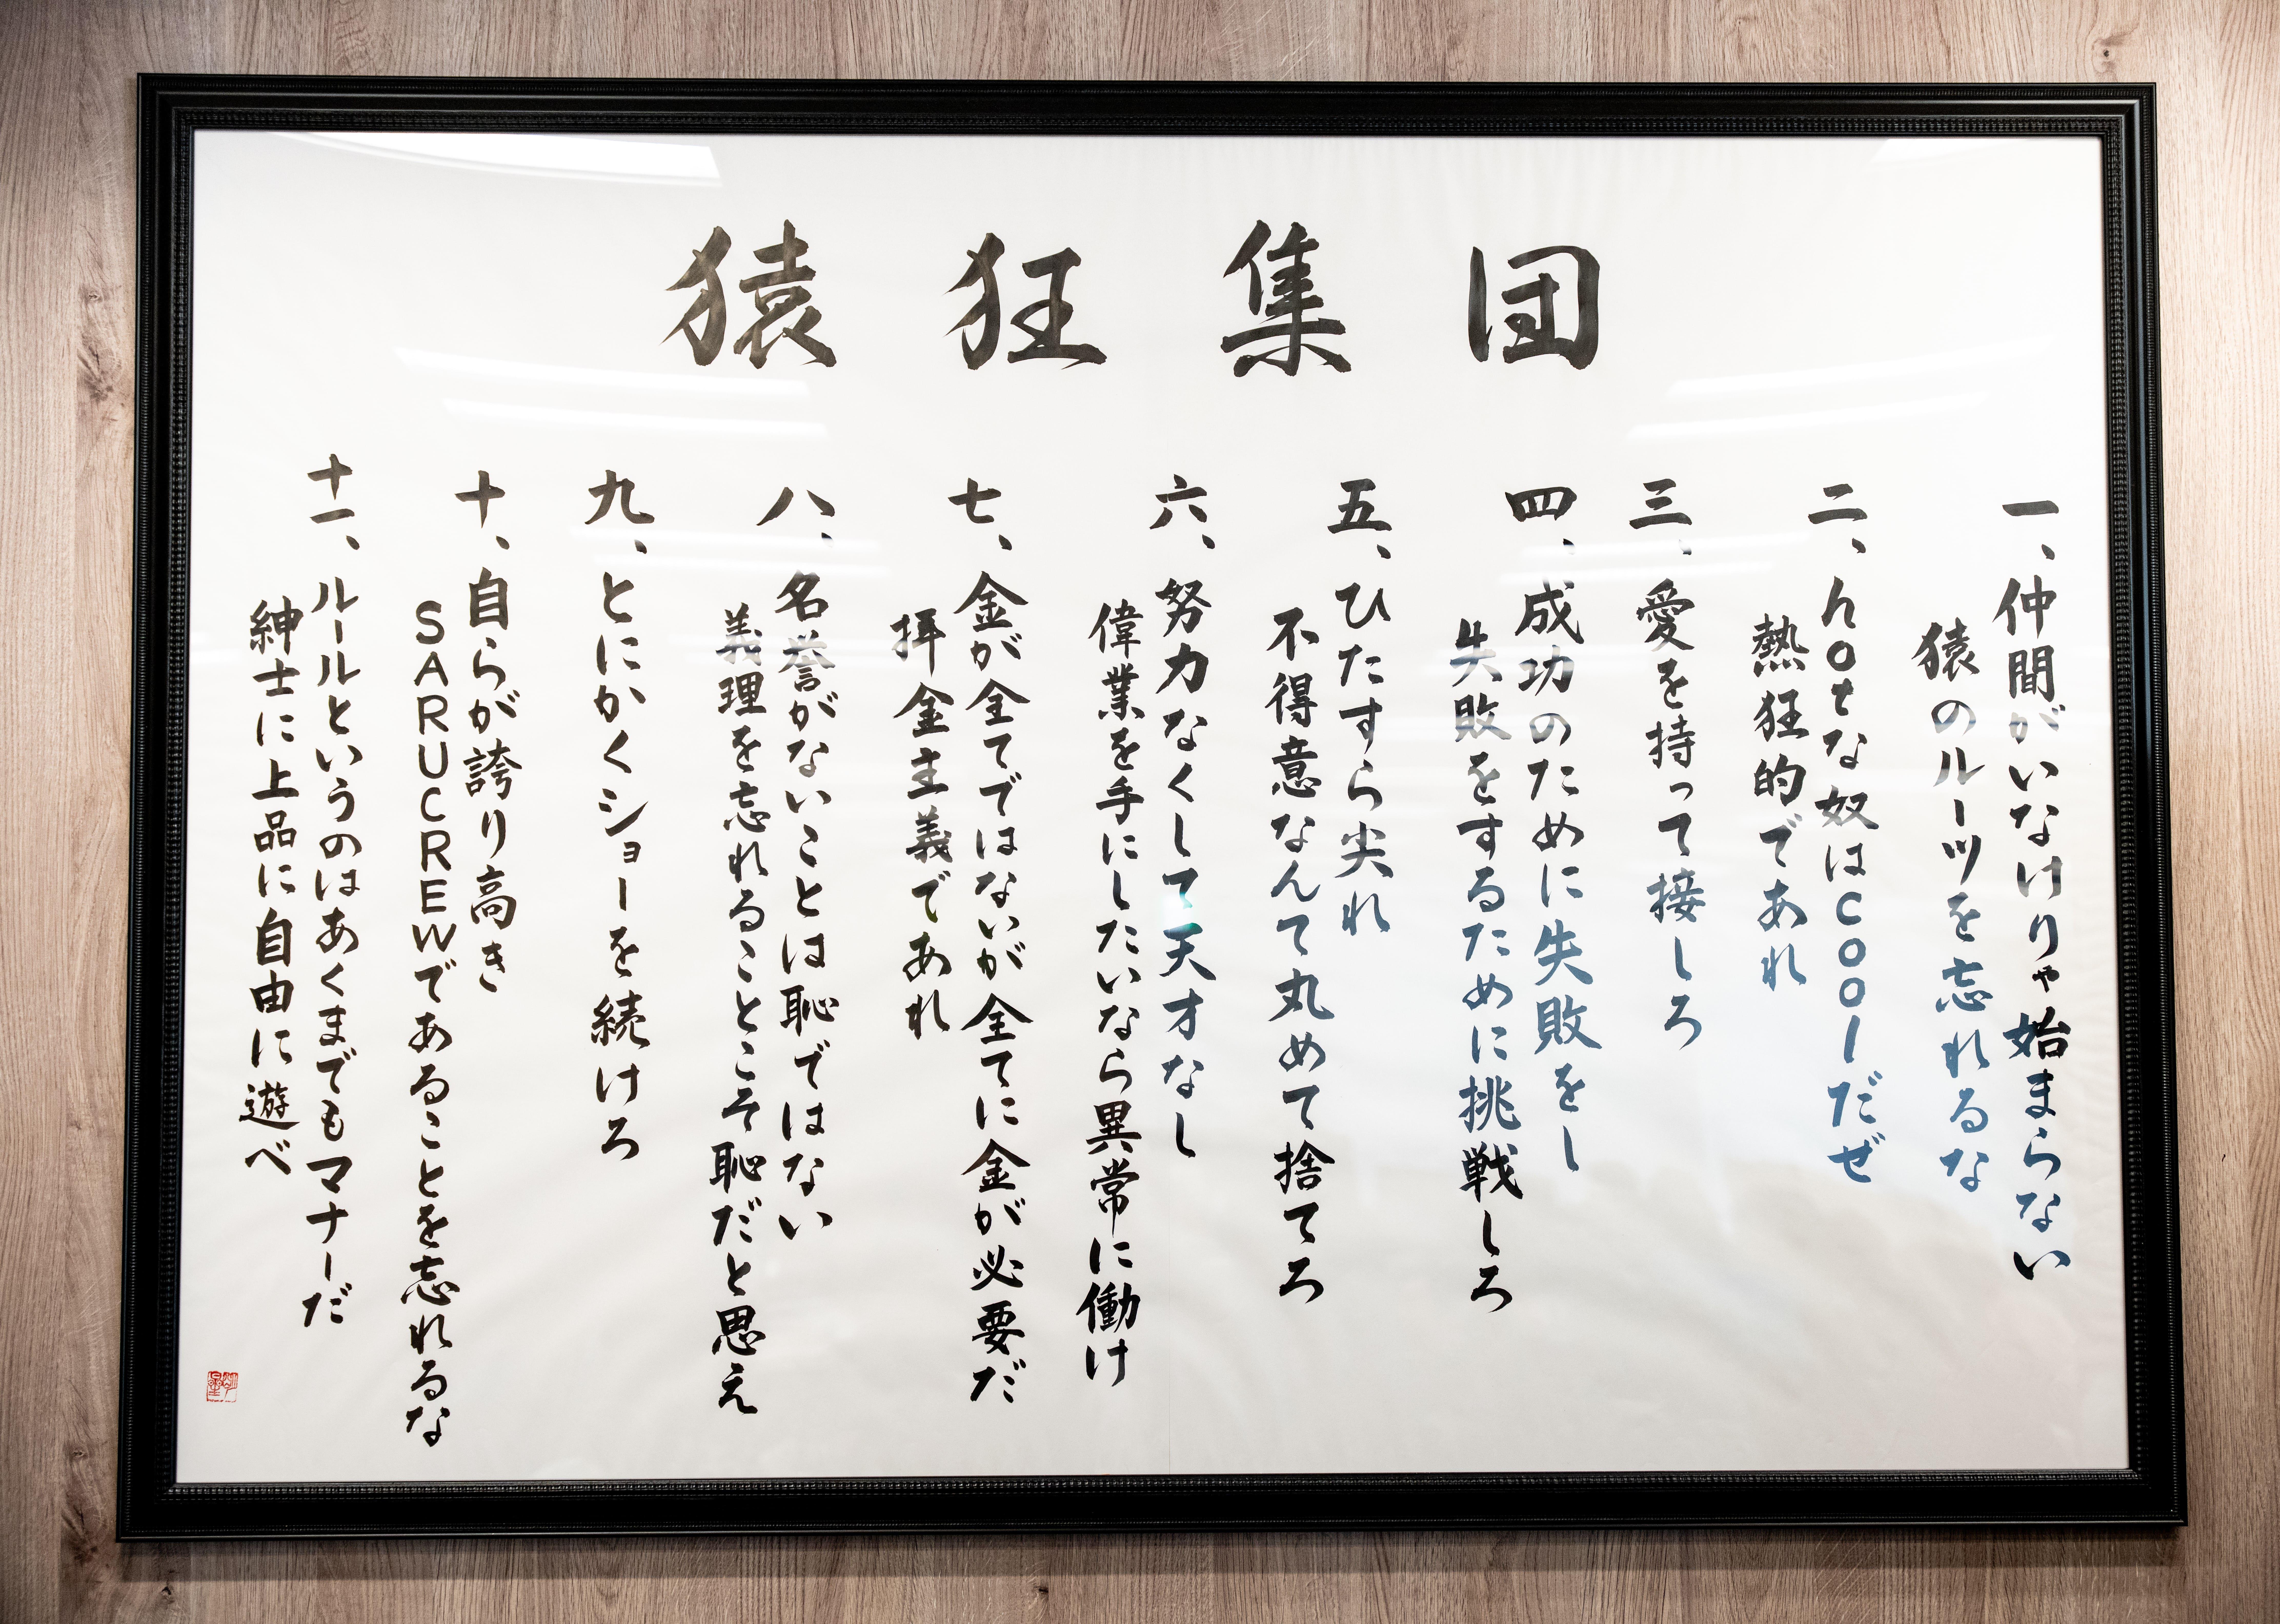 猿狂集団
一、仲間がいなけりゃ始まらない
猿のルーツを忘れるな
二、hotな奴はcoolだぜ
熱狂的であれ
三、愛を持って接しろ
四、成功のために失敗をし
失敗をするために挑戦しろ
五、ひたすら尖れ
不得意なんて丸めて捨てろ
六、努力なくして天才なし
偉業を手にしたいなら異常に働け
七、金が全てではないが全てに金が必要だ
拝金主義であれ
八、名誉がないことは恥ではない
義理を忘れることこそ恥だと思え
九、とにかくショーを続けろ
十、自らが誇り高き
SARUCREWであることを忘れるな
十一、ルールというのはあくまでもマナーだ
紳士に上品に自由に遊べ